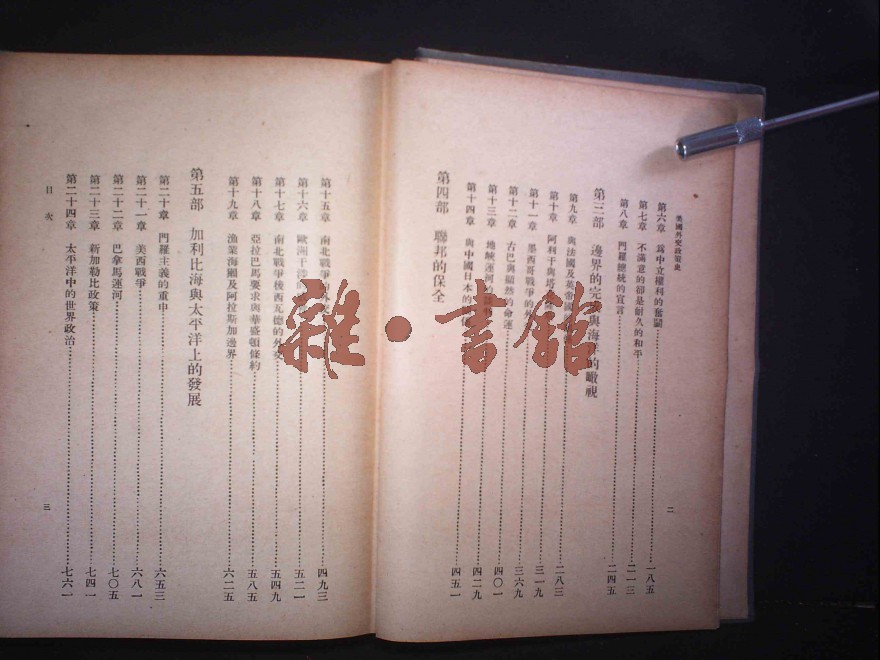 美國外交政策史
第六章 為中立權利的奮鬪 一八五
第七章 不滿意的卻是耐久的和平 二一三
第八章 門羅總統的宣言 二四五
第三部 邊界的完成與海洋的瞰視
第九章 與法國及英帝國 二八三
第十章 阿利干與塔 三一九
第十一章 墨西哥戰爭的外 三六九
第十二章 古巴與顯然的命運 四〇一
第十三章 地峽運河的 四二九
第十四章 與中國日本的 四五一
二
第四部 聯邦的保全
第十五章 南北戰爭 四九三
第十六章 歐洲干涉 五二一
第十七章 南北戰爭後西瓦德的外交 五四九
第十八章 亞拉巴馬要求與華盛頓條約 五八五
第十九章 漁業海願及阿拉斯加邊界 六二五
第五部 加利比海與太平洋上的發展
第二十章 門羅主義的重申 六五三
第二十一章 美西戰爭 六八一
第二十二章 巴拿馬運河 七〇五
第二十三章 新加勒比政策 七四一
第二十四章 太平洋中的世界政治 七六一
目次
三
雜·書館